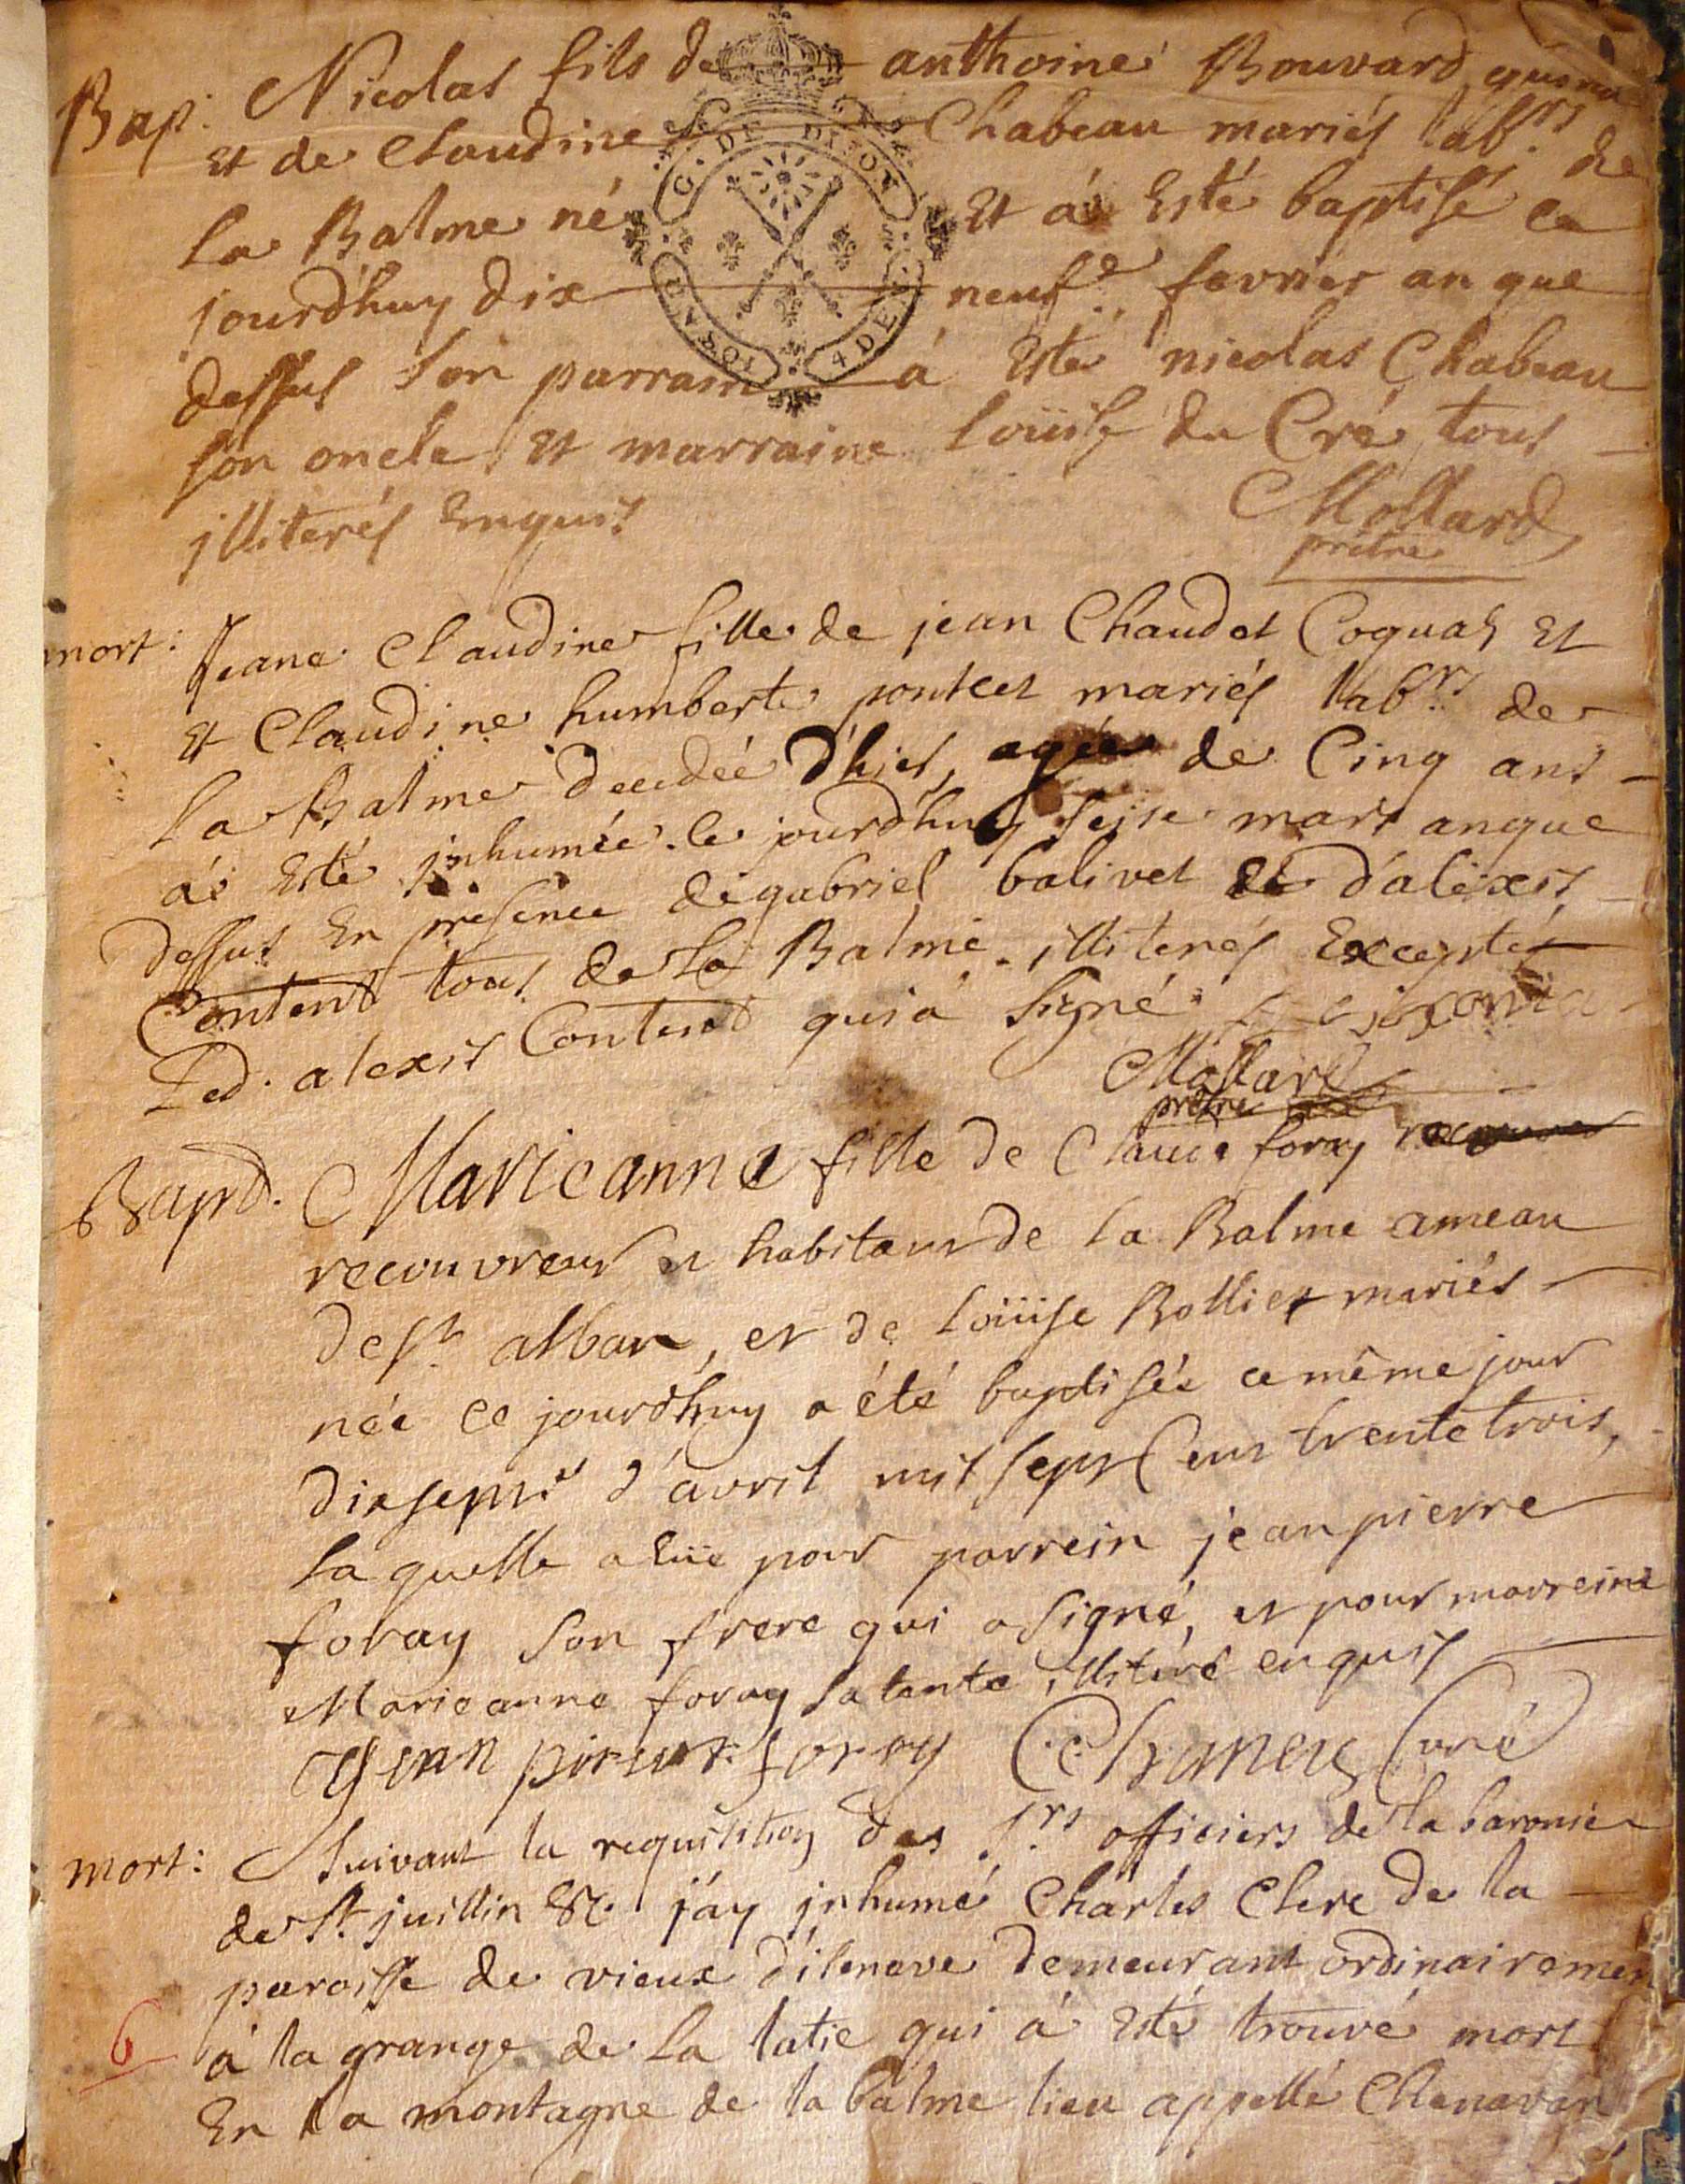 Bap: Nicolas fils de anthoine Bouvard
et de Claudine Chabeau mariés lab.rs de
G. DE DIJON
la Balme né et à esté baptisé ce
jourd'huy dix neuf.e fevrier an que
4 DE
dessus son parrain à esté nicolas Chabeau
son oncle et marraine loüise du Cré tous
illiterés enquis
Mollard
prêtre
mort: Jeane Claudine fille de jean Chaudet Coquas et
et Claudine humberte pontcet mariés lab.rs de
la Balme decedée d'hier, agée de Cinq ans
à esté inhumée ce jourd'huy seise mars an que
dessus En presence de gabriel balivet et d'alexis
Content tous de la Balme illiterés Excepté
led. alexis Content qui à signé
Mollard
prêtre
Bapt. Marieanne fille de Claude foray
recouvreur et habitant de la Balme ameau
de st alban, et de loüise Bollier mariés
née ce jourdhuy a été baptisée ce même jour
dixsept.e d'avril mil sept Cent trente trois,
laquelle a eüe pour parrein jean pierre
foray son frere qui a signé, et pour marreine
Marieanne foray sa tante, illitéré enquis
Jean pierre foray Chaney Curé
mort: Suivant la requisition des s.rs officiers de la baronie
de st juillin &c. j'ay inhumé Charles Clerc de la
paroisse de vieux d'isenave demeurant ordinairemen
6 à la grange de la latie qui à esté trouvé mort
En la montagne de la balme lieu appellé Chenavan